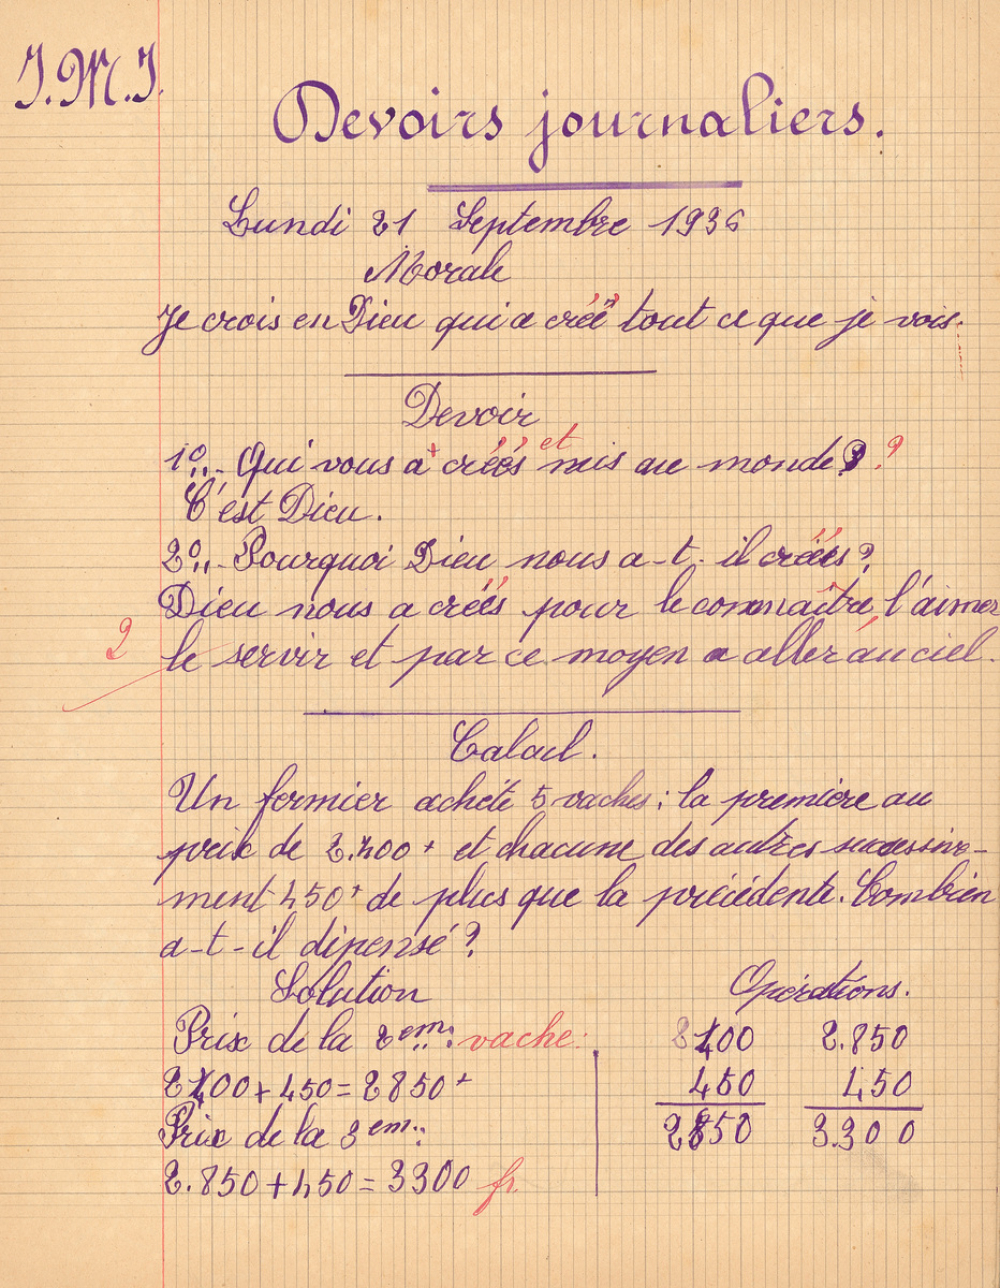 J.M.J.
Devoirs journaliers.
Lundi 21 Septembre 1936
Morale
Je crois en Dieu qui a créé tout ce que je vois.
Devoir
1°,,.- Qui vous a créés et mis au monde ? ?
C'est Dieu.
2°,,.- Pourquoi Dieu nous a-t-il créés ?
Dieu nous a créés pour le connaître, l'aimer
2
le servir et par ce moyen aller au ciel.
Calcul.
Un fermier achète 5 vaches ; la première au
prix de 2.400 f et chacune des autres successive-
ment 450 f de plus que la précédente. Combien
a-t-il dépensé ?
Solution
Opérations.
Prix de la 2em: vache:
2400 2.850
2400 + 450 = 2850 f
450 450
Prix de la 3em:
2850 3.300
2.850 + 450 = 3300 fr.